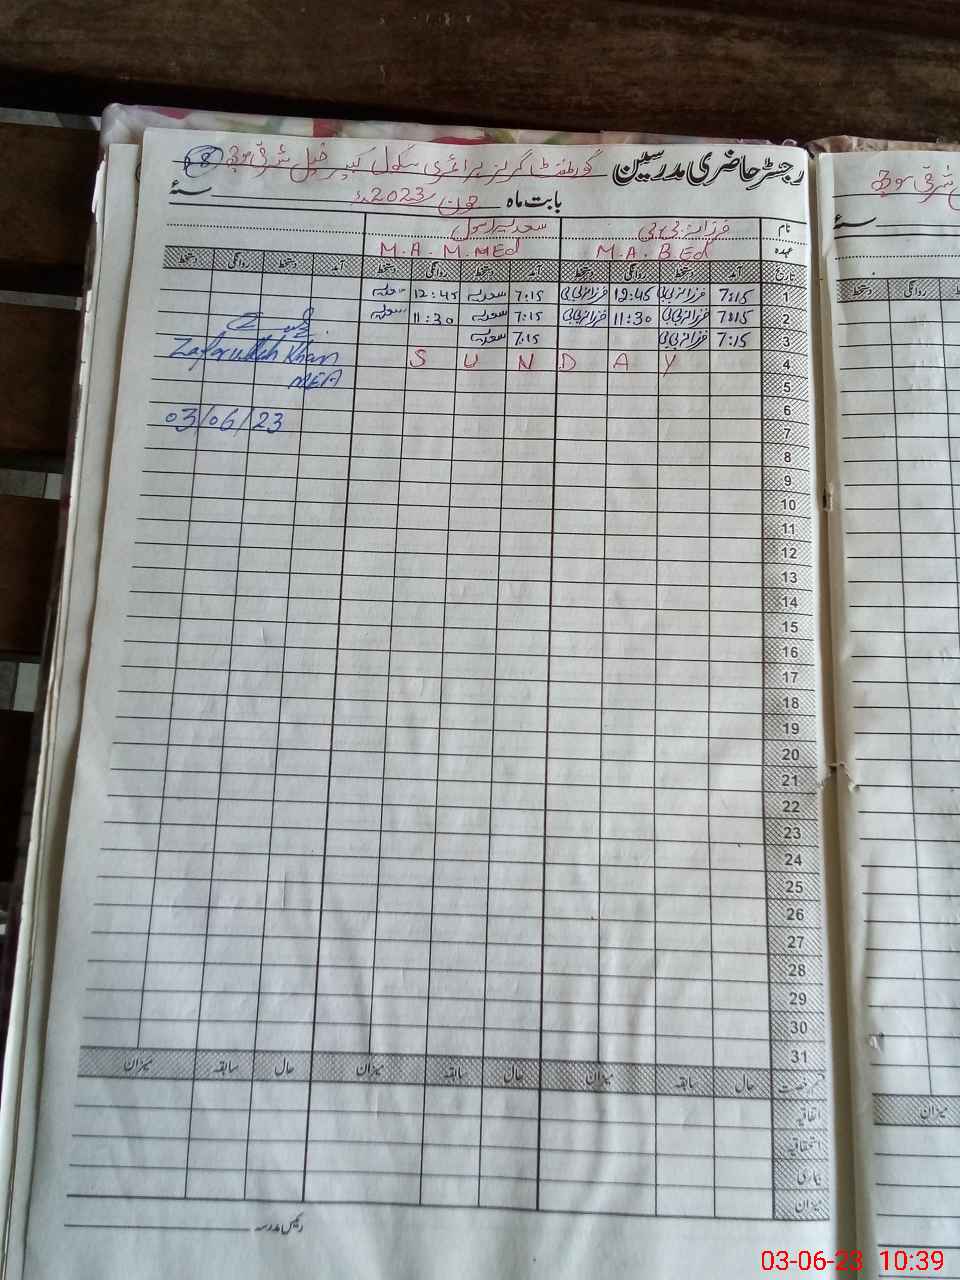 رجسٹر حاضری مدرسین گورنمنٹ گرلز پرائمری سکول کبیر خیل شرقی موچھ 8
بابت ماہ جون 2023ء سنۂ
نام فرزانہ بی بی سعدیہ رسول
عہدہ M.A. B.Ed M.A. M.MEd
تاریخ آمد دستخط روانگی دستخط آمد دستخط روانگی دستخط آمد دستخط روانگی دستخط
1 7:15 فرزانہ بی بی 12:45 فرزانہ بی بی 7:15 سعدیہ 12:45 سعدیہ
2 7:15 فرزانہ بی بی 11:30 فرزانہ بی بی 7:15 سعدیہ 11:30 سعدیہ
3 7:15 فرزانہ بی بی 7:15 سعدیہ
4 S U N D A Y
Zafarullah Khan
MEA
03/06/23
5
6
7
8
9
10
11
12
13
14
15
16
17
18
19
20
21
22
23
24
25
26
27
28
29
30
31
رخصت حال سابقہ میزان حال سابقہ میزان حال سابقہ میزان
اتفاقیہ
استحقاقیہ
بیماری
میزان
رئیس مدرسہ
شرقی موچھ
سنۂ
دستخط روانگی دستخط
میزان
03-06-23 10:39